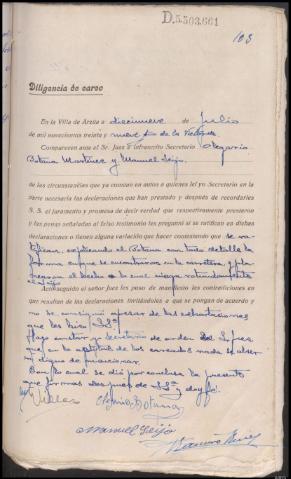 D.5.503.661
103
Diligencia de careo
En la Villa de Arzúa a diecinueve de Julio
de mil novecientos treinta y nueve Año de la Victoria
Comparecen ante el Sr. Juez é infrascrito Secretario Olegario
Botana Martinez y Manuel Seijo.
de las circunstancias que ya constan en autos a quienes leí yo Secretario en la
parte necesaria las declaraciones que han prestado y después de recordarles
S. S. el juramento y promesa de decir verdad que respectivamente prestaron
y las penas señaladas al falso testimonio les preguntó si se ratifican en dichas
declaraciones o tienen alguna variación que hacer contestando que se ra-
tifican, explicando el Botana con todo detalle la
forma en que se encontraron en la carretera y
el hecho lo cual niega rotundamente
el Seijo
Acto seguido el señor Juez les puso de manifiesto las contradicciones en
que resultan de las declaraciones invitándoles a que se pongan de acuerdo y
no se consiguió apesar de las exhortaciones
que les hizo SSª
Hago constar yo Secretario de orden del Sr Juez
que en la actitud de los careados nada se obser-
vó digno de mencionar.
Con lo cual se dió por conclusa la presente
que firman despues de SSª y doy fé.
Olegario Botana
Manuel Seijo
Ramiro